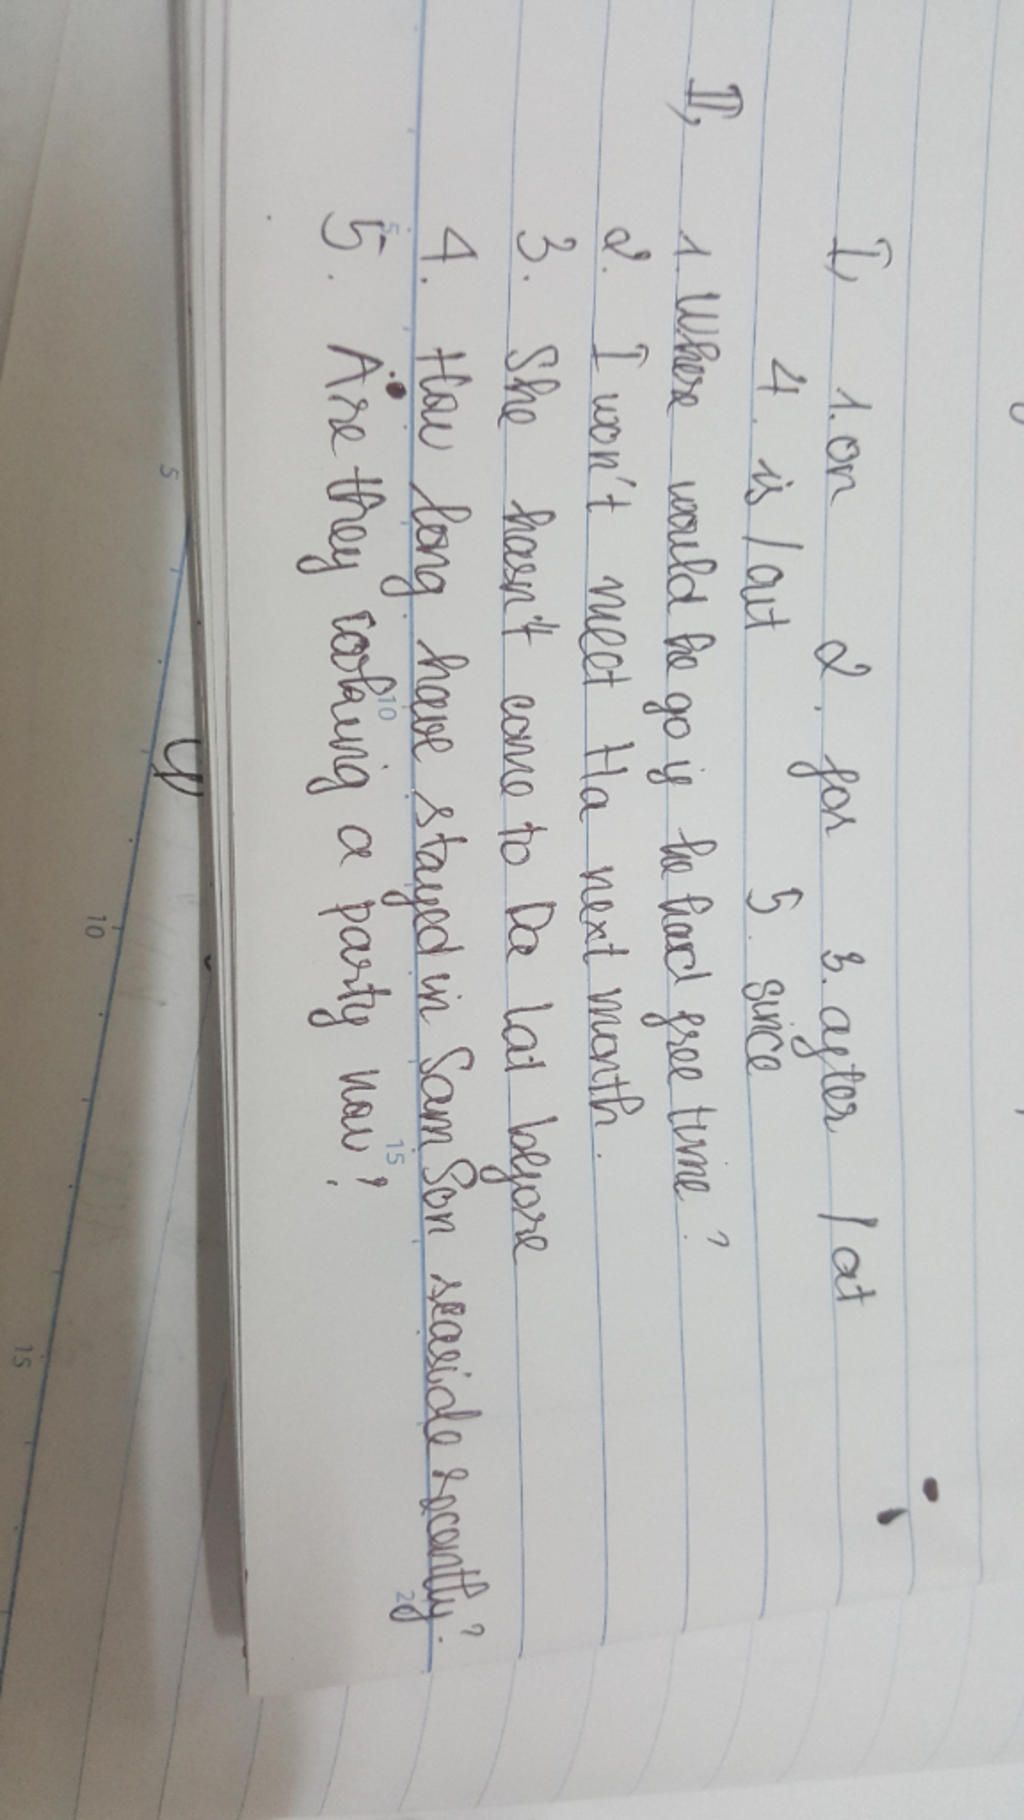 I, 1. on 2. for 3. after / at
4. is / out 5. since
II, 1. Where would he go if he had free time?
2. I won't meet Ha next month.
3. She hasn't come to Da lat before
4. How long have stayed in Sam Son seaside recently?
5. Are they having a party now?